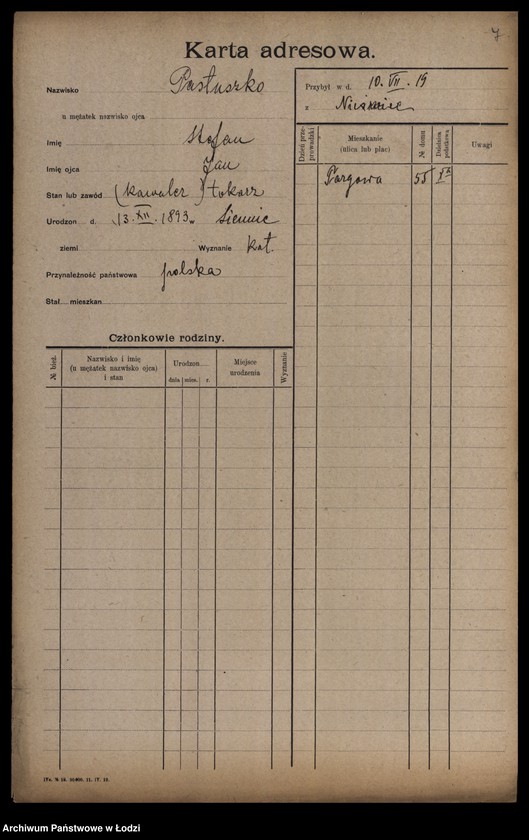 7
Karta adresowa.
Nazwisko Pastuszko
u mężatek nazwisko ojca
Imię Stefan
Imię ojca Jan
Stan lub zawód (kawaler) tokarz
Urodzon d. 13. XII. 1893 w
ziemi Wyznanie kat.
Przynależność państwowa polska
Stał. mieszkan.
Przybył w d. 10. VII. 19
z
Dzień przeprowadzki
Mieszkanie
(ulica lub plac)
№ domu
Dzielnica podatkowa
Uwagi
Targowa 55
Członkowie rodziny.
№ bież.
Nazwisko i imię
(u mężatek nazwisko ojca)
i stan
Urodzon
dnia mies. r.
Miejsce
urodzenia
Wyznanie
Archiwum Państwowe w Łodzi